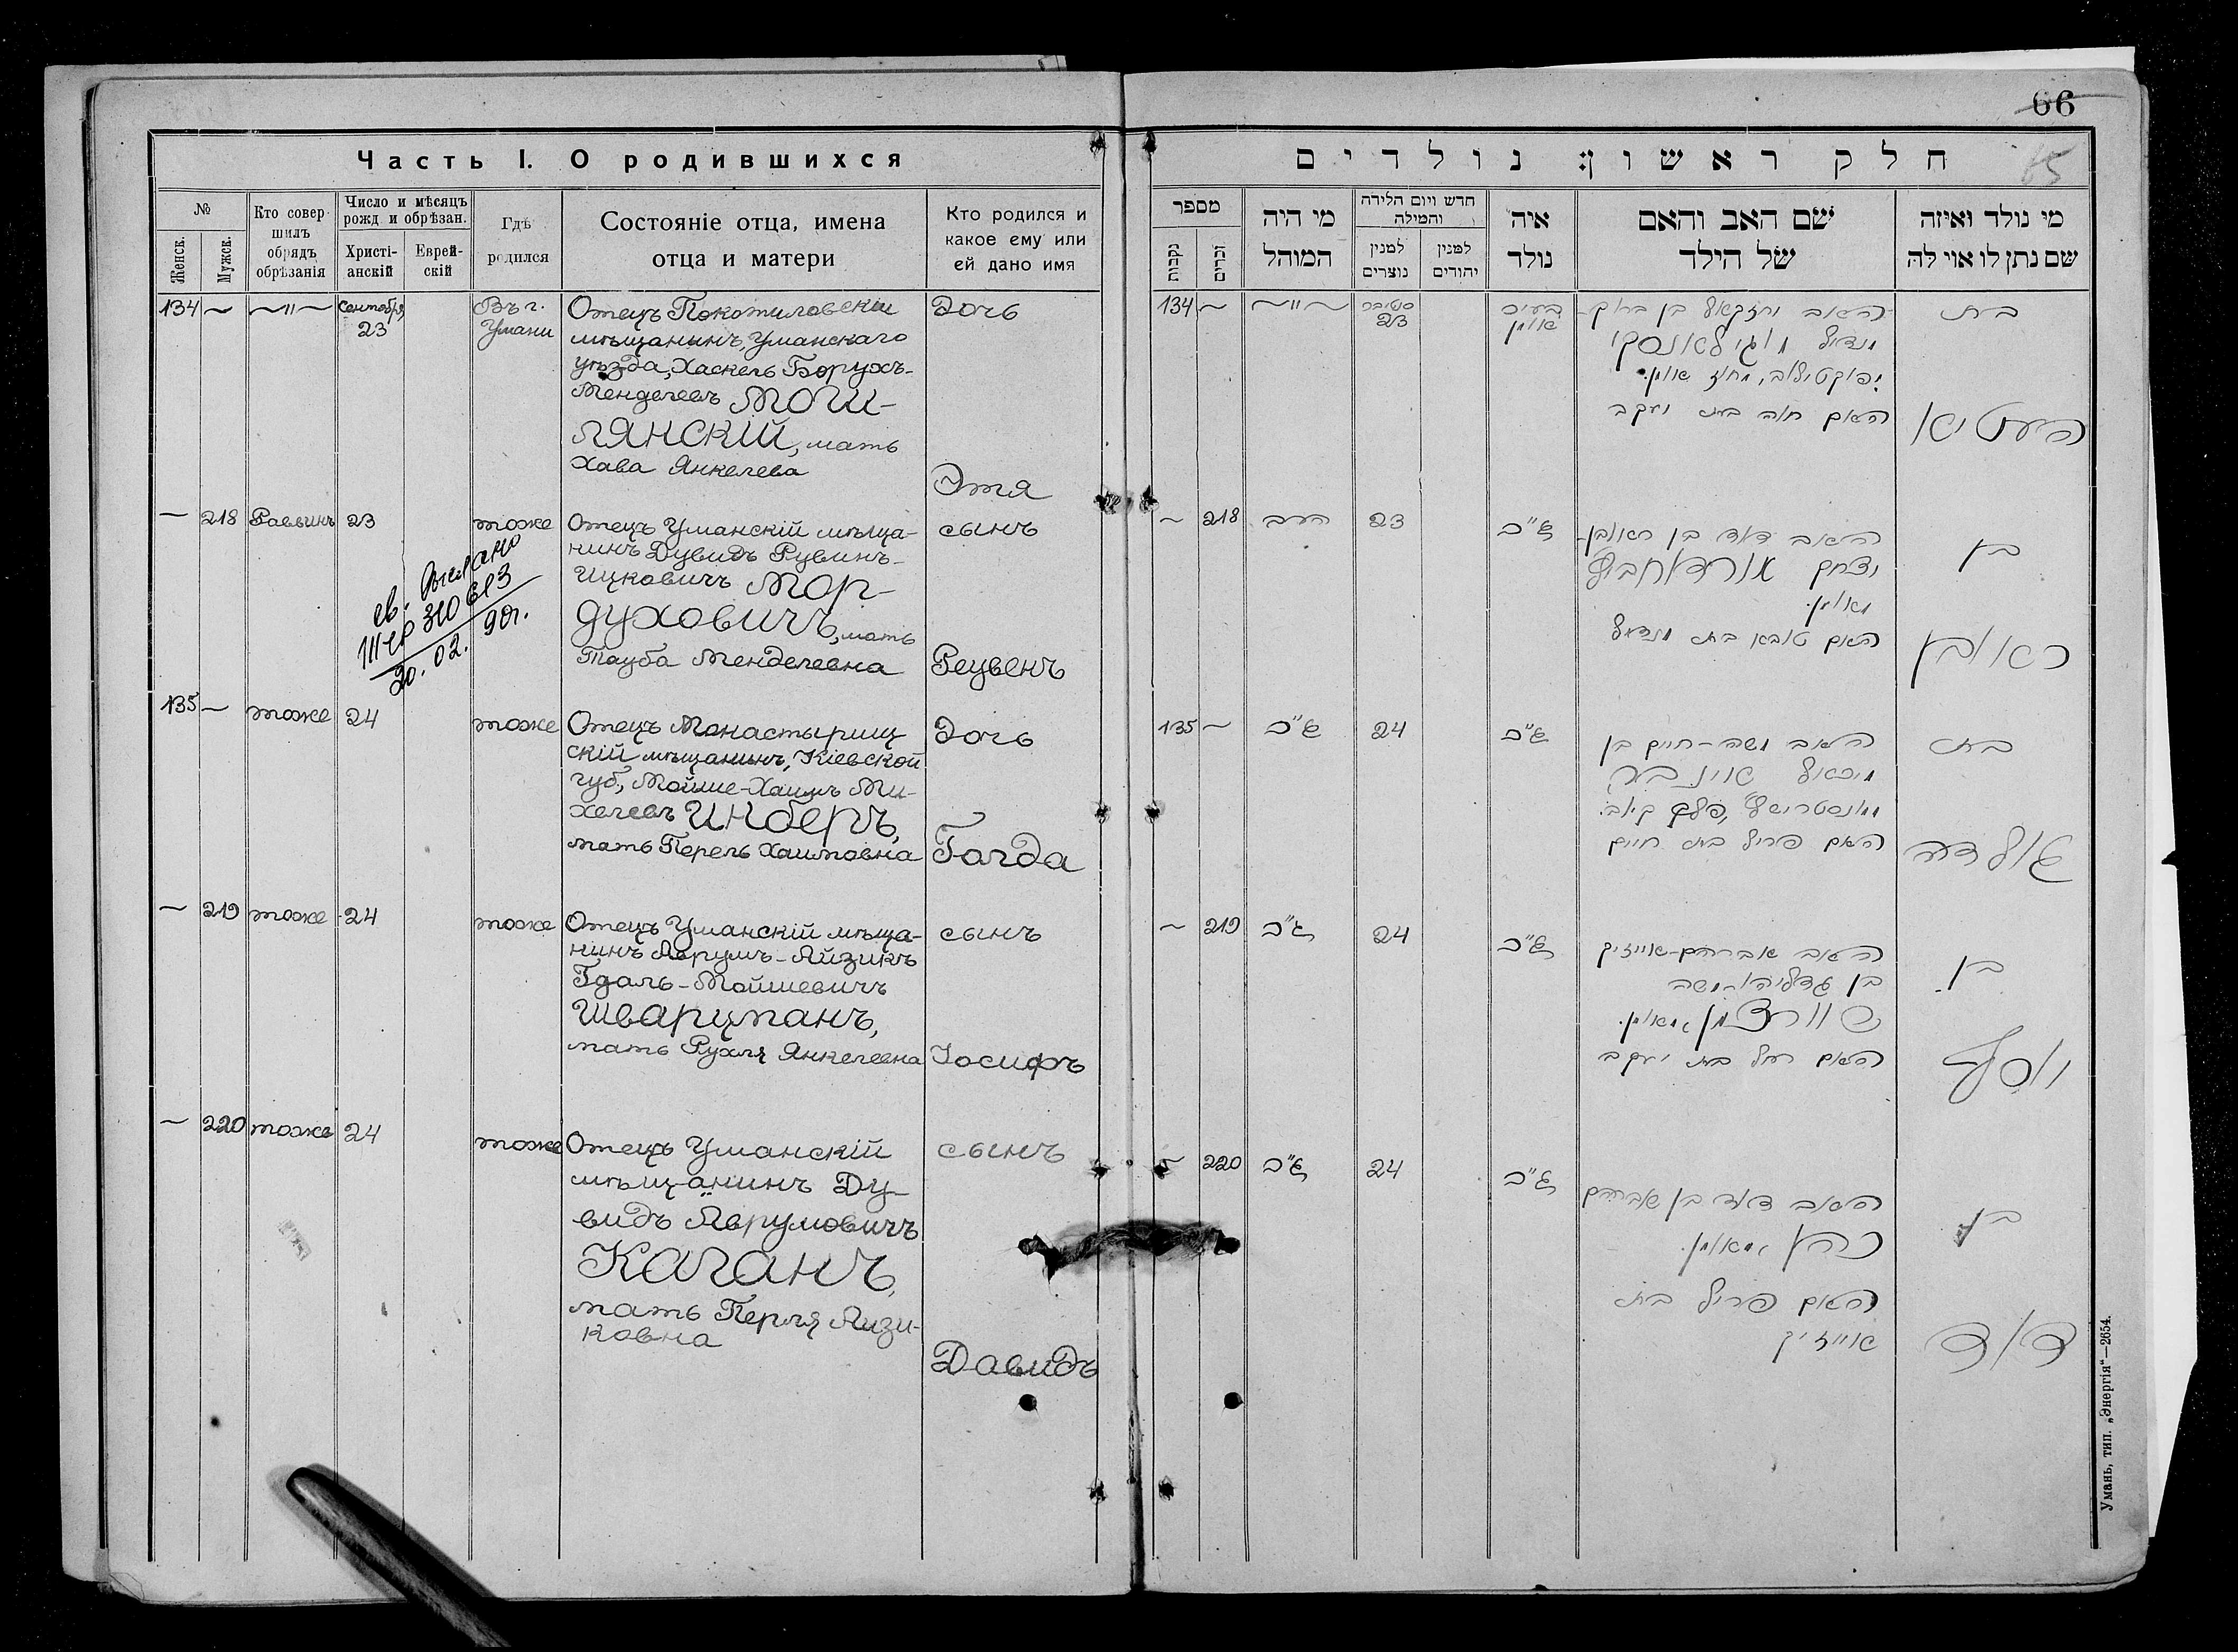 66
65
Часть I. О родившихся
№
Женск.
Мужск.
Кто совер-
шилъ
обрядъ
обрѣзанія
Число и мѣсяцъ
рожд и обрѣзан.
Христі-
анскій
Еврей-
скій
Гдѣ
родился
Состояніе отца, имена
отца и матери
Кто родился и
какое ему или
ей дано имя
134 ~ ~"~ Сентября
23
Въ г.
Умани
Отецъ Покотиловскій
мѣщанинъ, Уманскаго
уѣзда, Хаскель Борухъ-
Менделевъ МОГИ-
ЛЯНСКІЙ, мать
Хава Янкелева
Дочь
Этя
— 218 Раввинъ 23 тоже
Отецъ Уманскій мѣща-
нинъ Дувидъ Рувинъ-
Ицковичъ Мор-
духовичъ, мать
Тауба Менделевна
сынъ
Реувенъ
20. 02. 90г.
135 — тоже 24 тоже
Отецъ Монастырищ
скій мѣщанинъ, Кіевской
губ, Мойше-Хаимъ Ми-
хелевъ Инберъ,
мать Перель Хаимовна
Дочь
Голда
— 219 тоже 24 тоже
Отецъ Уманскій мѣща-
нинъ Аврумъ-Айзикъ
Гдаль-Мойшевичъ
Шварцманъ,
мать Рухля Янкелевна
сынъ
Іосифъ
— 220 тоже 24 тоже
Отецъ Уманскій
мѣщанинъ Ду-
видъ Аврумовичъ
Каганъ,
мать Перля Айзи-
ковна
сынъ
Давидъ
חלק ראשון: נולדים
מספר
נקבות
זכרים
מי היה
המוהל
חדש ויום הלידה
והמילה
למנין
נוצרים
למנין
יהודים
איה
נולד
שם האב והאם
של הילד
מי נולד ואיזה
שם נתן לו או לה
134 ~ ~"~
23
בעיר
אומן
האב יחזקאל בן ברוך-
מנדיל מוגילאנסקי
מחוז אומן.
האם חוה בת יעקב
בת
העטיא
~ 218 הרב 23 ג"כ
האב דוד בן ראובן-
יצחק
מאומן.
האם טובא בת מנדיל
בן
ראובן
135 ~ ג"כ 24 ג"כ
האב משה-חיים בן
מיכאל
פלך קיוב.
האם פריל בת חיים
בת
גולדה
~ 219 ג"כ 24 ג"כ
האב אברהם-אייזיק
בן גדליה-משה
שווארצמן, מאומן.
האם רחל בת יעקב
בן
יוסף
~ 220 ג"כ 24 ג"כ
האב דוד בן אברהם
כהן, מאומן.
האם פריל בת
אייזיק
בן
דוד
Умань, тип. „Энергія“—2654.